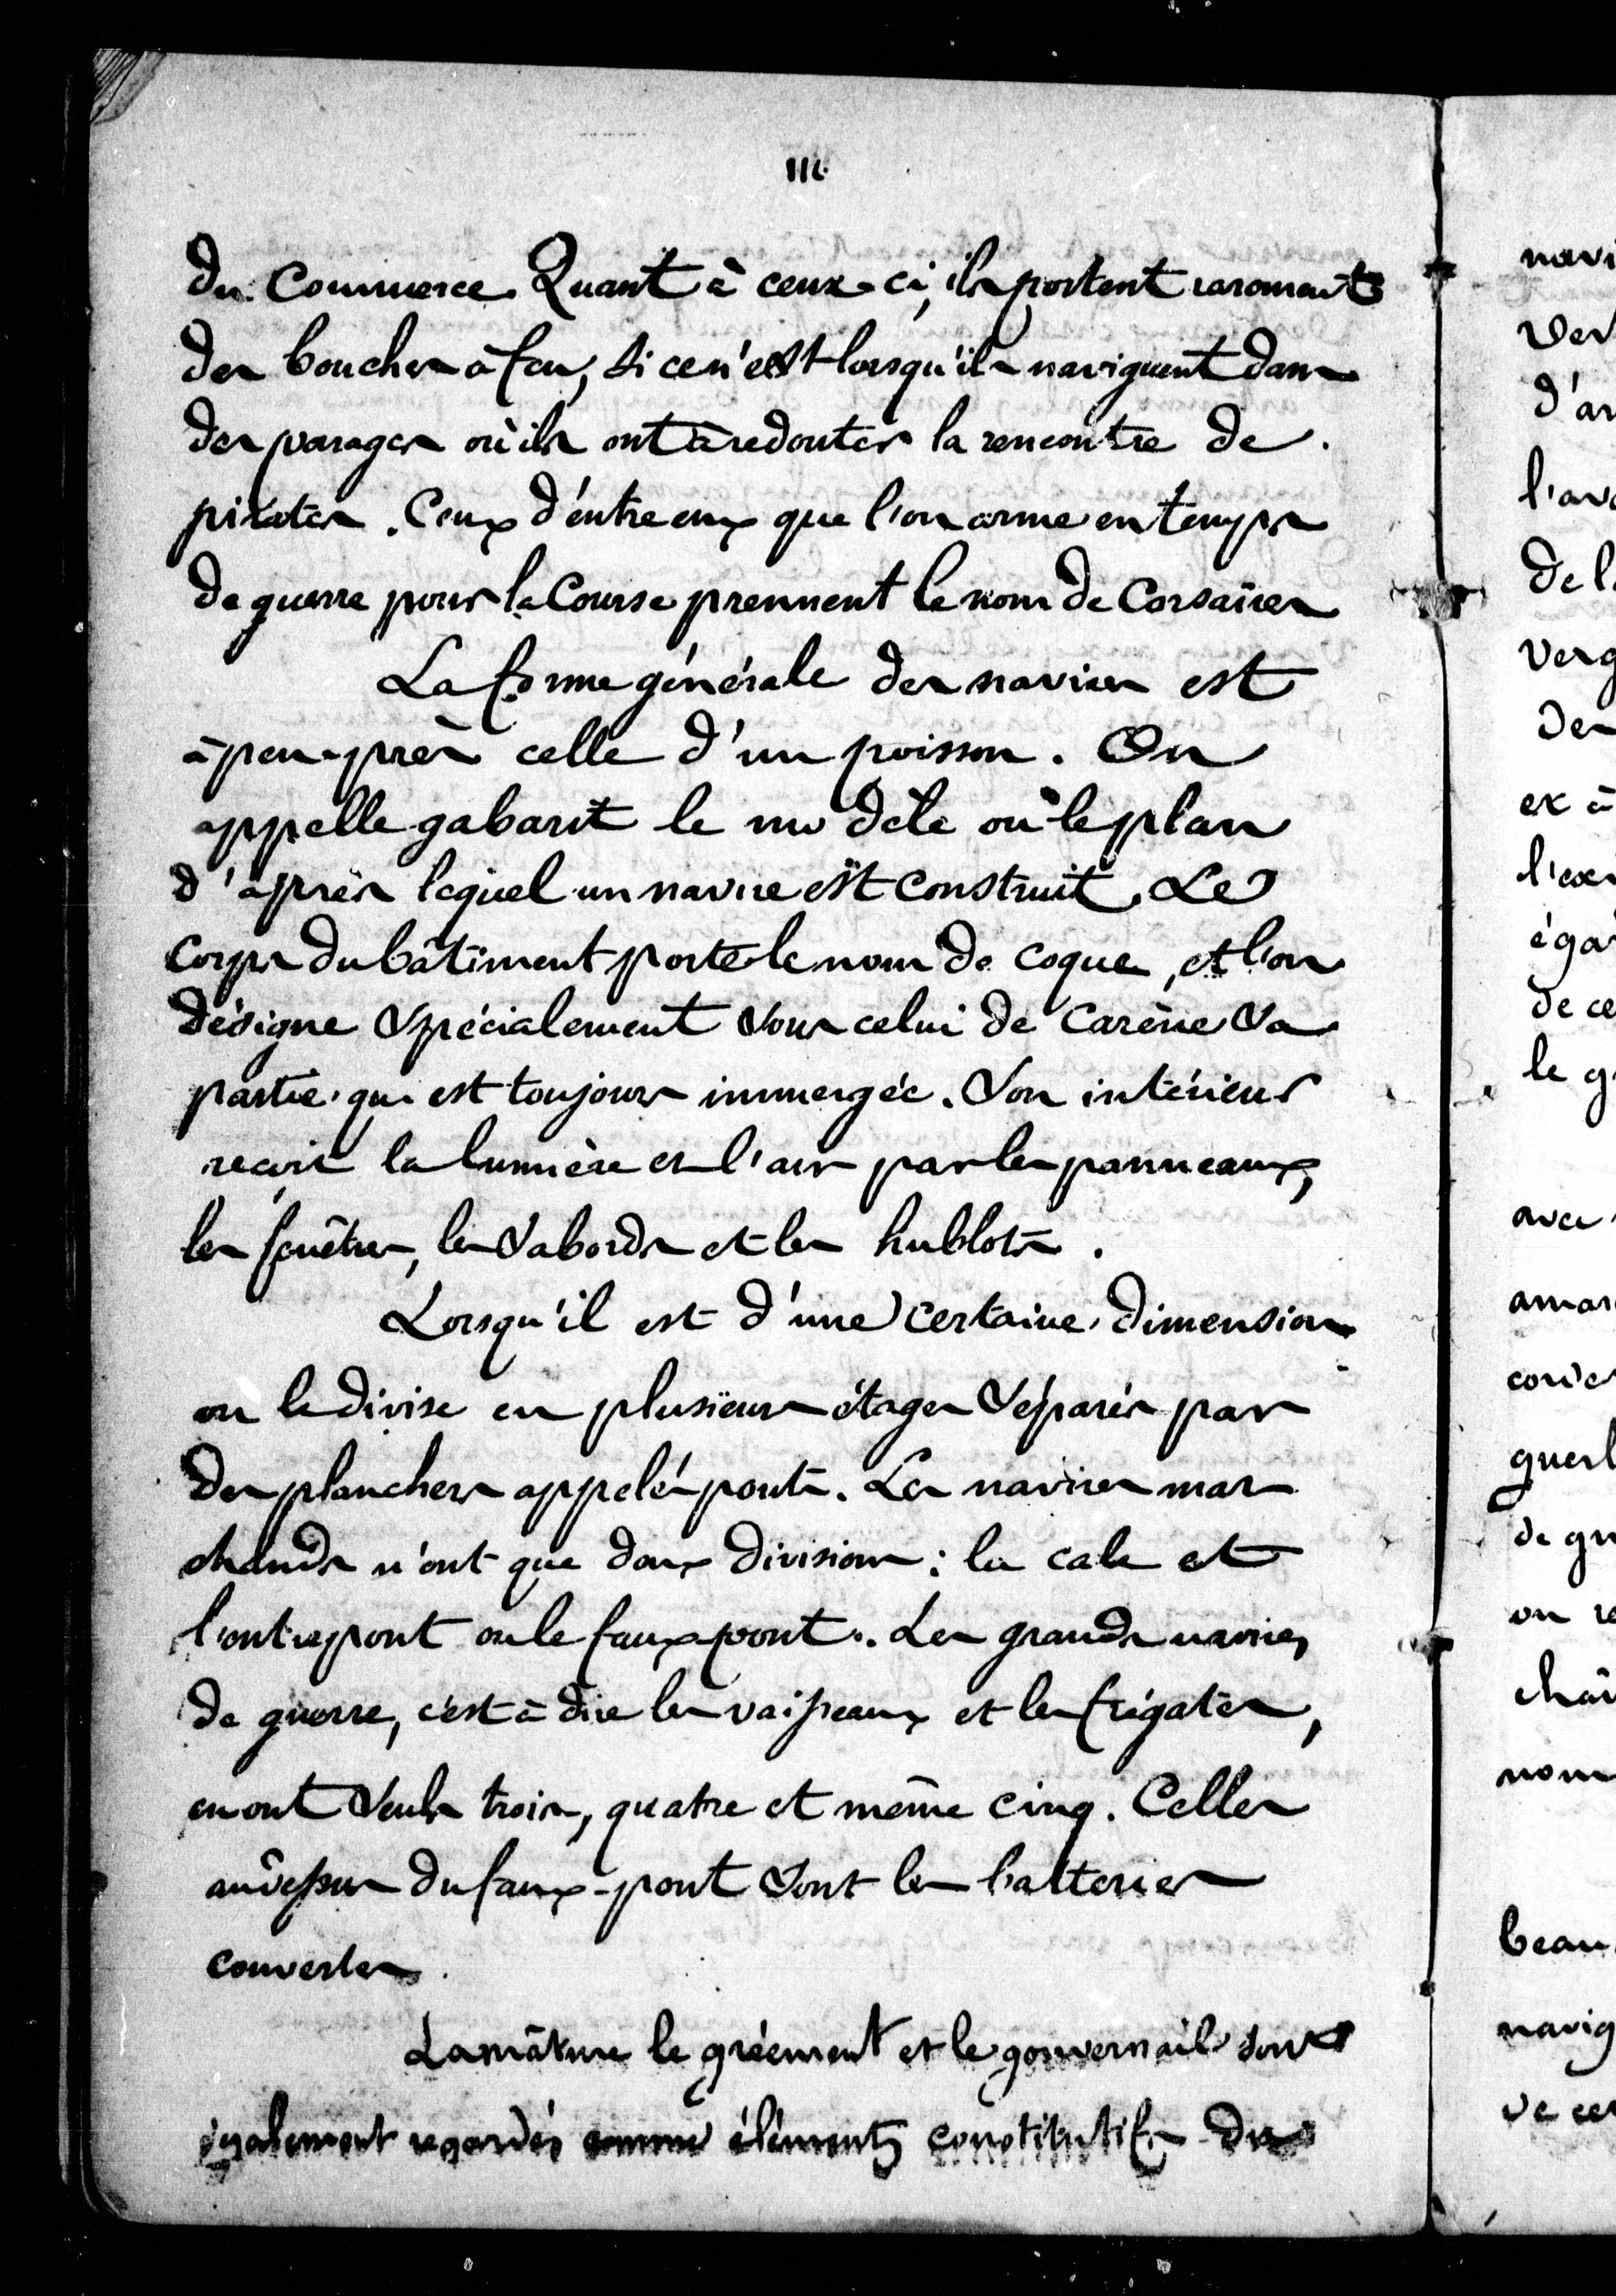 116
du Commerce. Quant à ceux-ci, ils portent rarement
des bouches à feu, si ce n'est lorsqu'ils naviguent dans
des parages où ils ont à redouter la rencontre de
pirates. Ceux d'entre eux que l'on arme en temps
de guerre pour la Course prennent le nom de Corsaires
La forme générale des navires est
à peu-près celle d'un poisson. On
appelle gabarit le modèle ou le plan
d'après lequel un navire est construit. Le
corps du bâtiment porte le nom de coque, et l'on
désigne spécialement sous celui de Carène sa
partie qui est toujours immergée. Son intérieur
reçoit la lumière et l'air par les panneaux,
les fenêtres, les sabords et les hublots.
Lorsqu'il est d'une certaine dimension
on le divise en plusieurs étages séparés par
des planchers appelés ponts. Les navires mar
chands n'ont que deux divisions : la cale et
l'entrepont ou le faux pont. Les grands navires
de guerre, c'est à dire les vaisseaux et les frégates,
en ont seuls trois, quatre et même cinq. Celles
au dessus du faux-pont sont les batteries
couvertes.
La mâture le gréement et le gouvernail sont
également regardés comme éléments constitutifs du
navi
d'ar
l'av
de l
verg
des
ex à
l'ex
éga
de ce
le g
avec
amar
corde
quel
de gu
on re
châ
nom
beau
navig